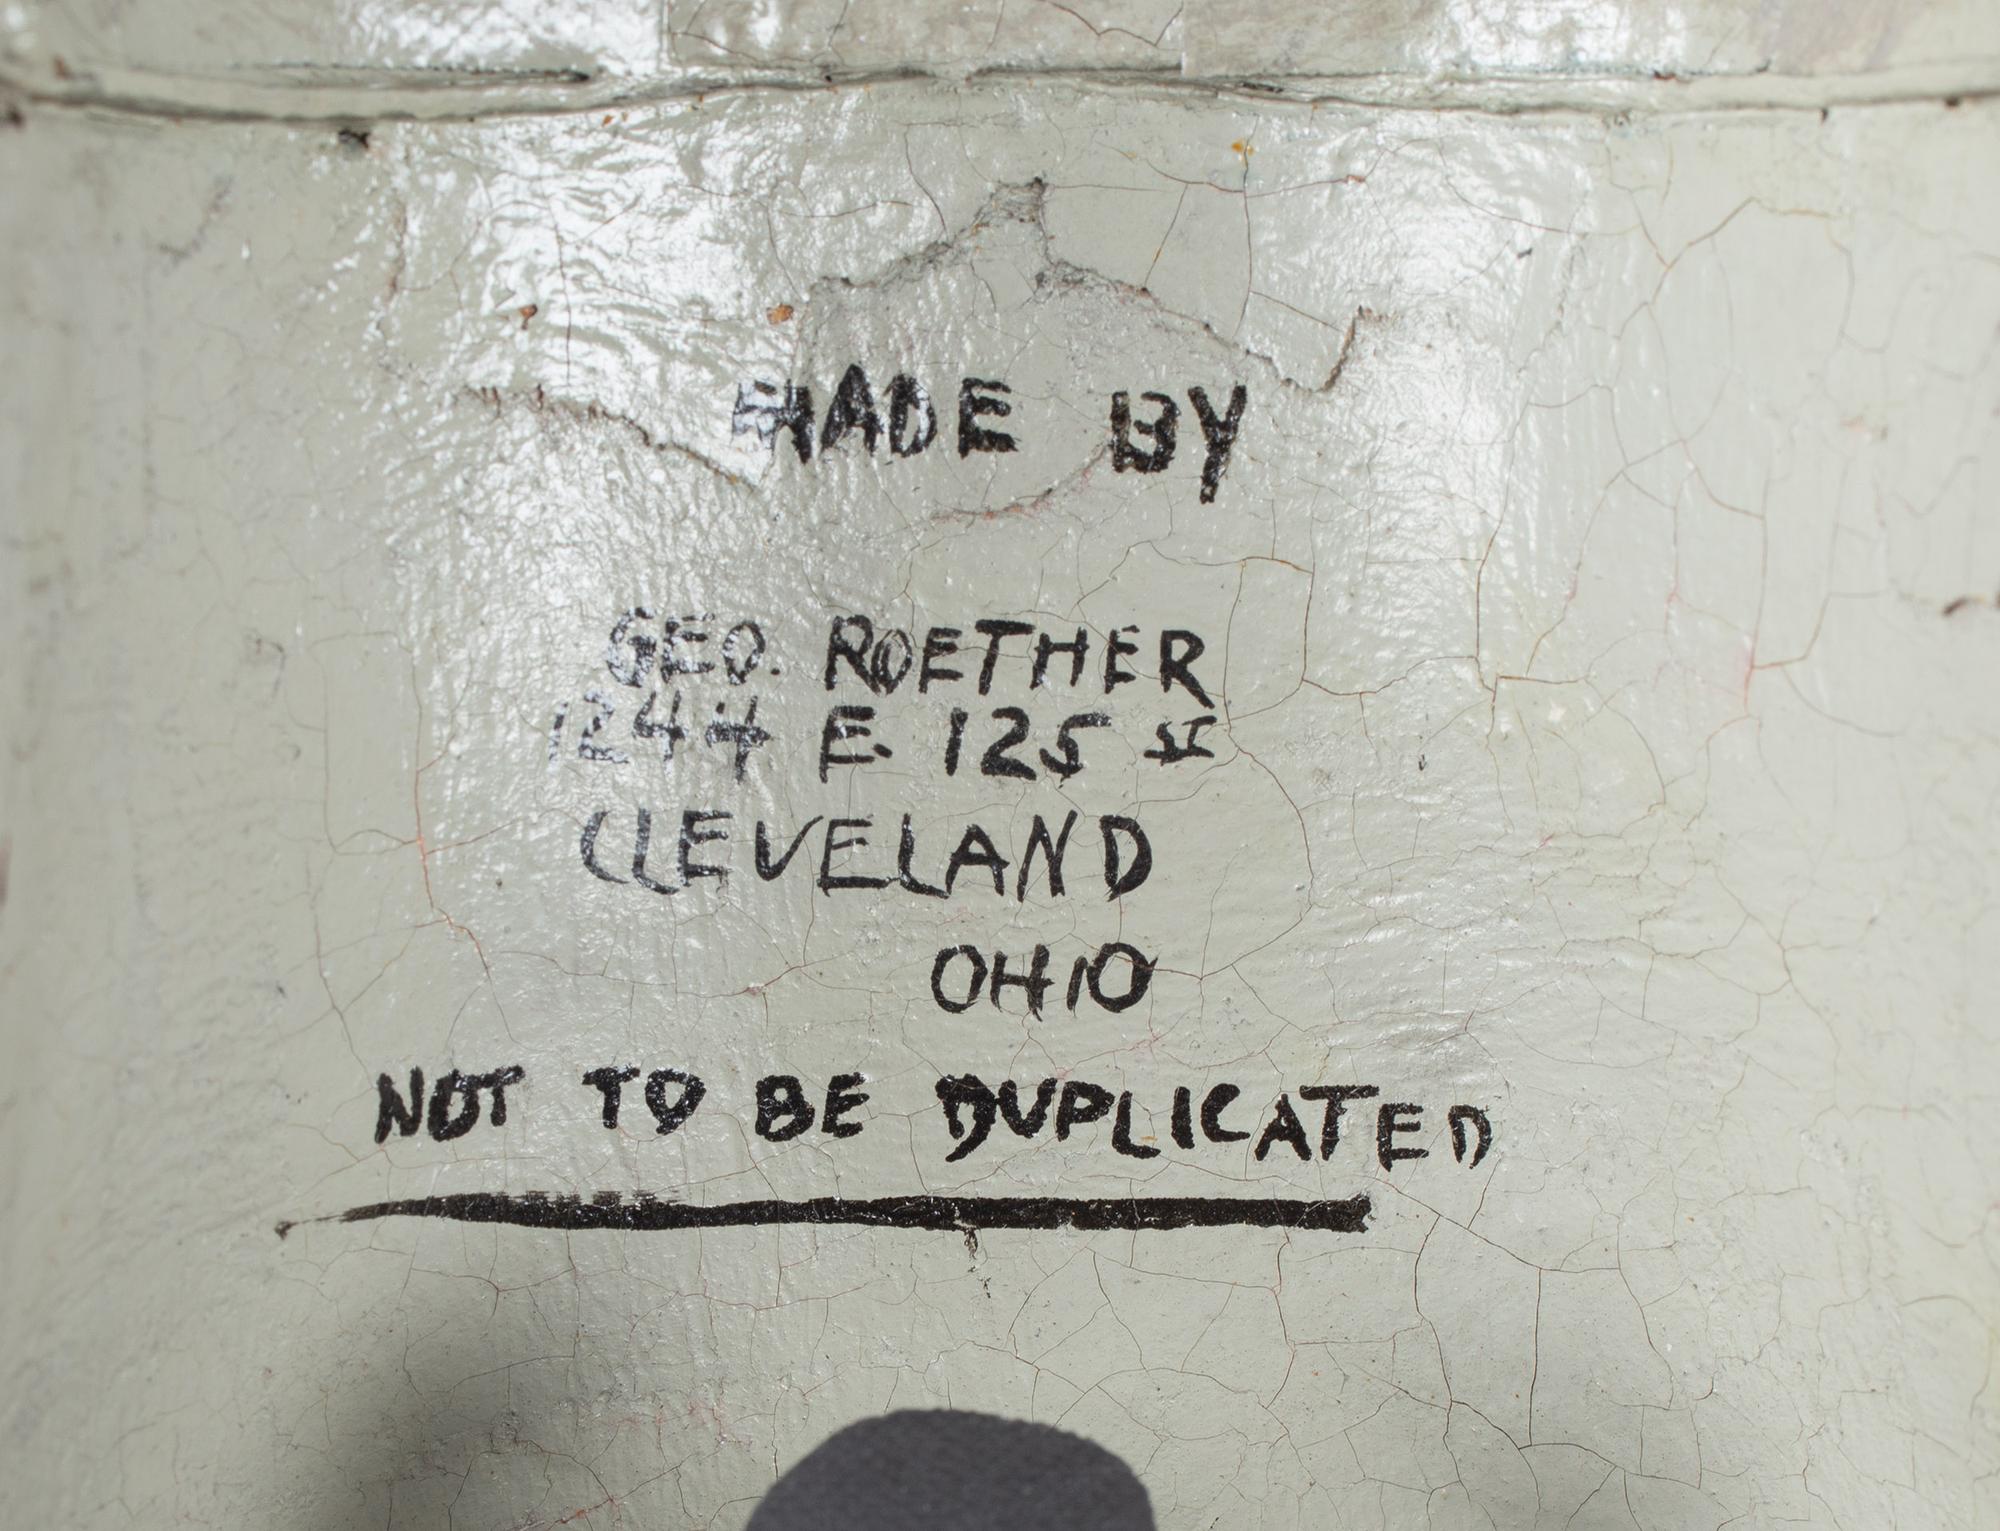 MADE BY
GEO. ROETHER
1244 E. 125 ST
CLEVELAND
OHIO
NOT TO BE DUPLICATED